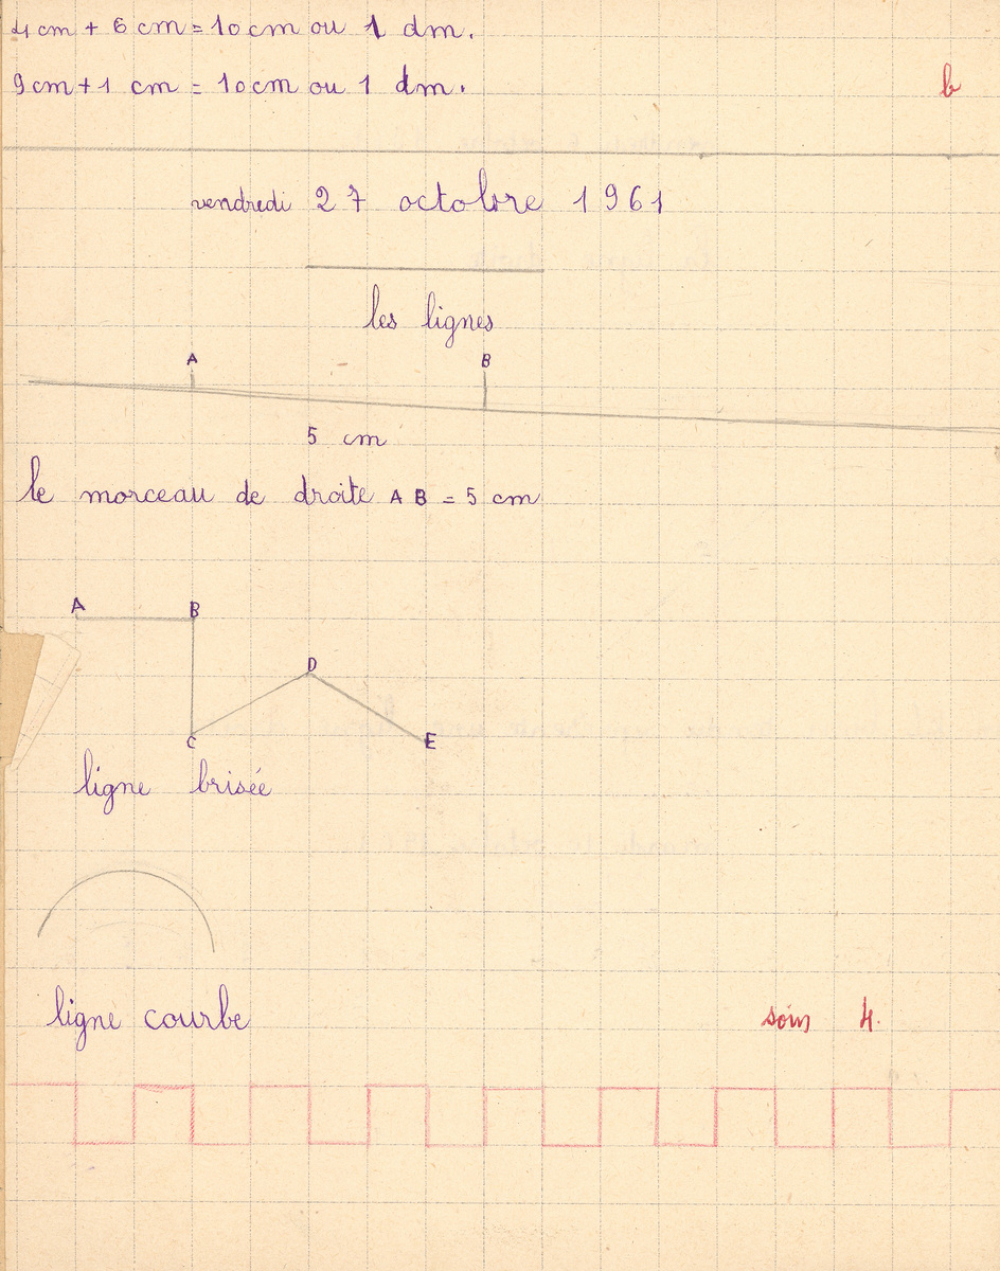 4 cm + 6 cm = 10 cm ou 1 dm.
9 cm + 1 cm = 10 cm ou 1 dm.
b
vendredi 27 octobre 1961
les lignes
A B
5 cm
le morceau de droite A B = 5 cm
A B
D
C E
ligne brisée
ligne courbe
soin 4.